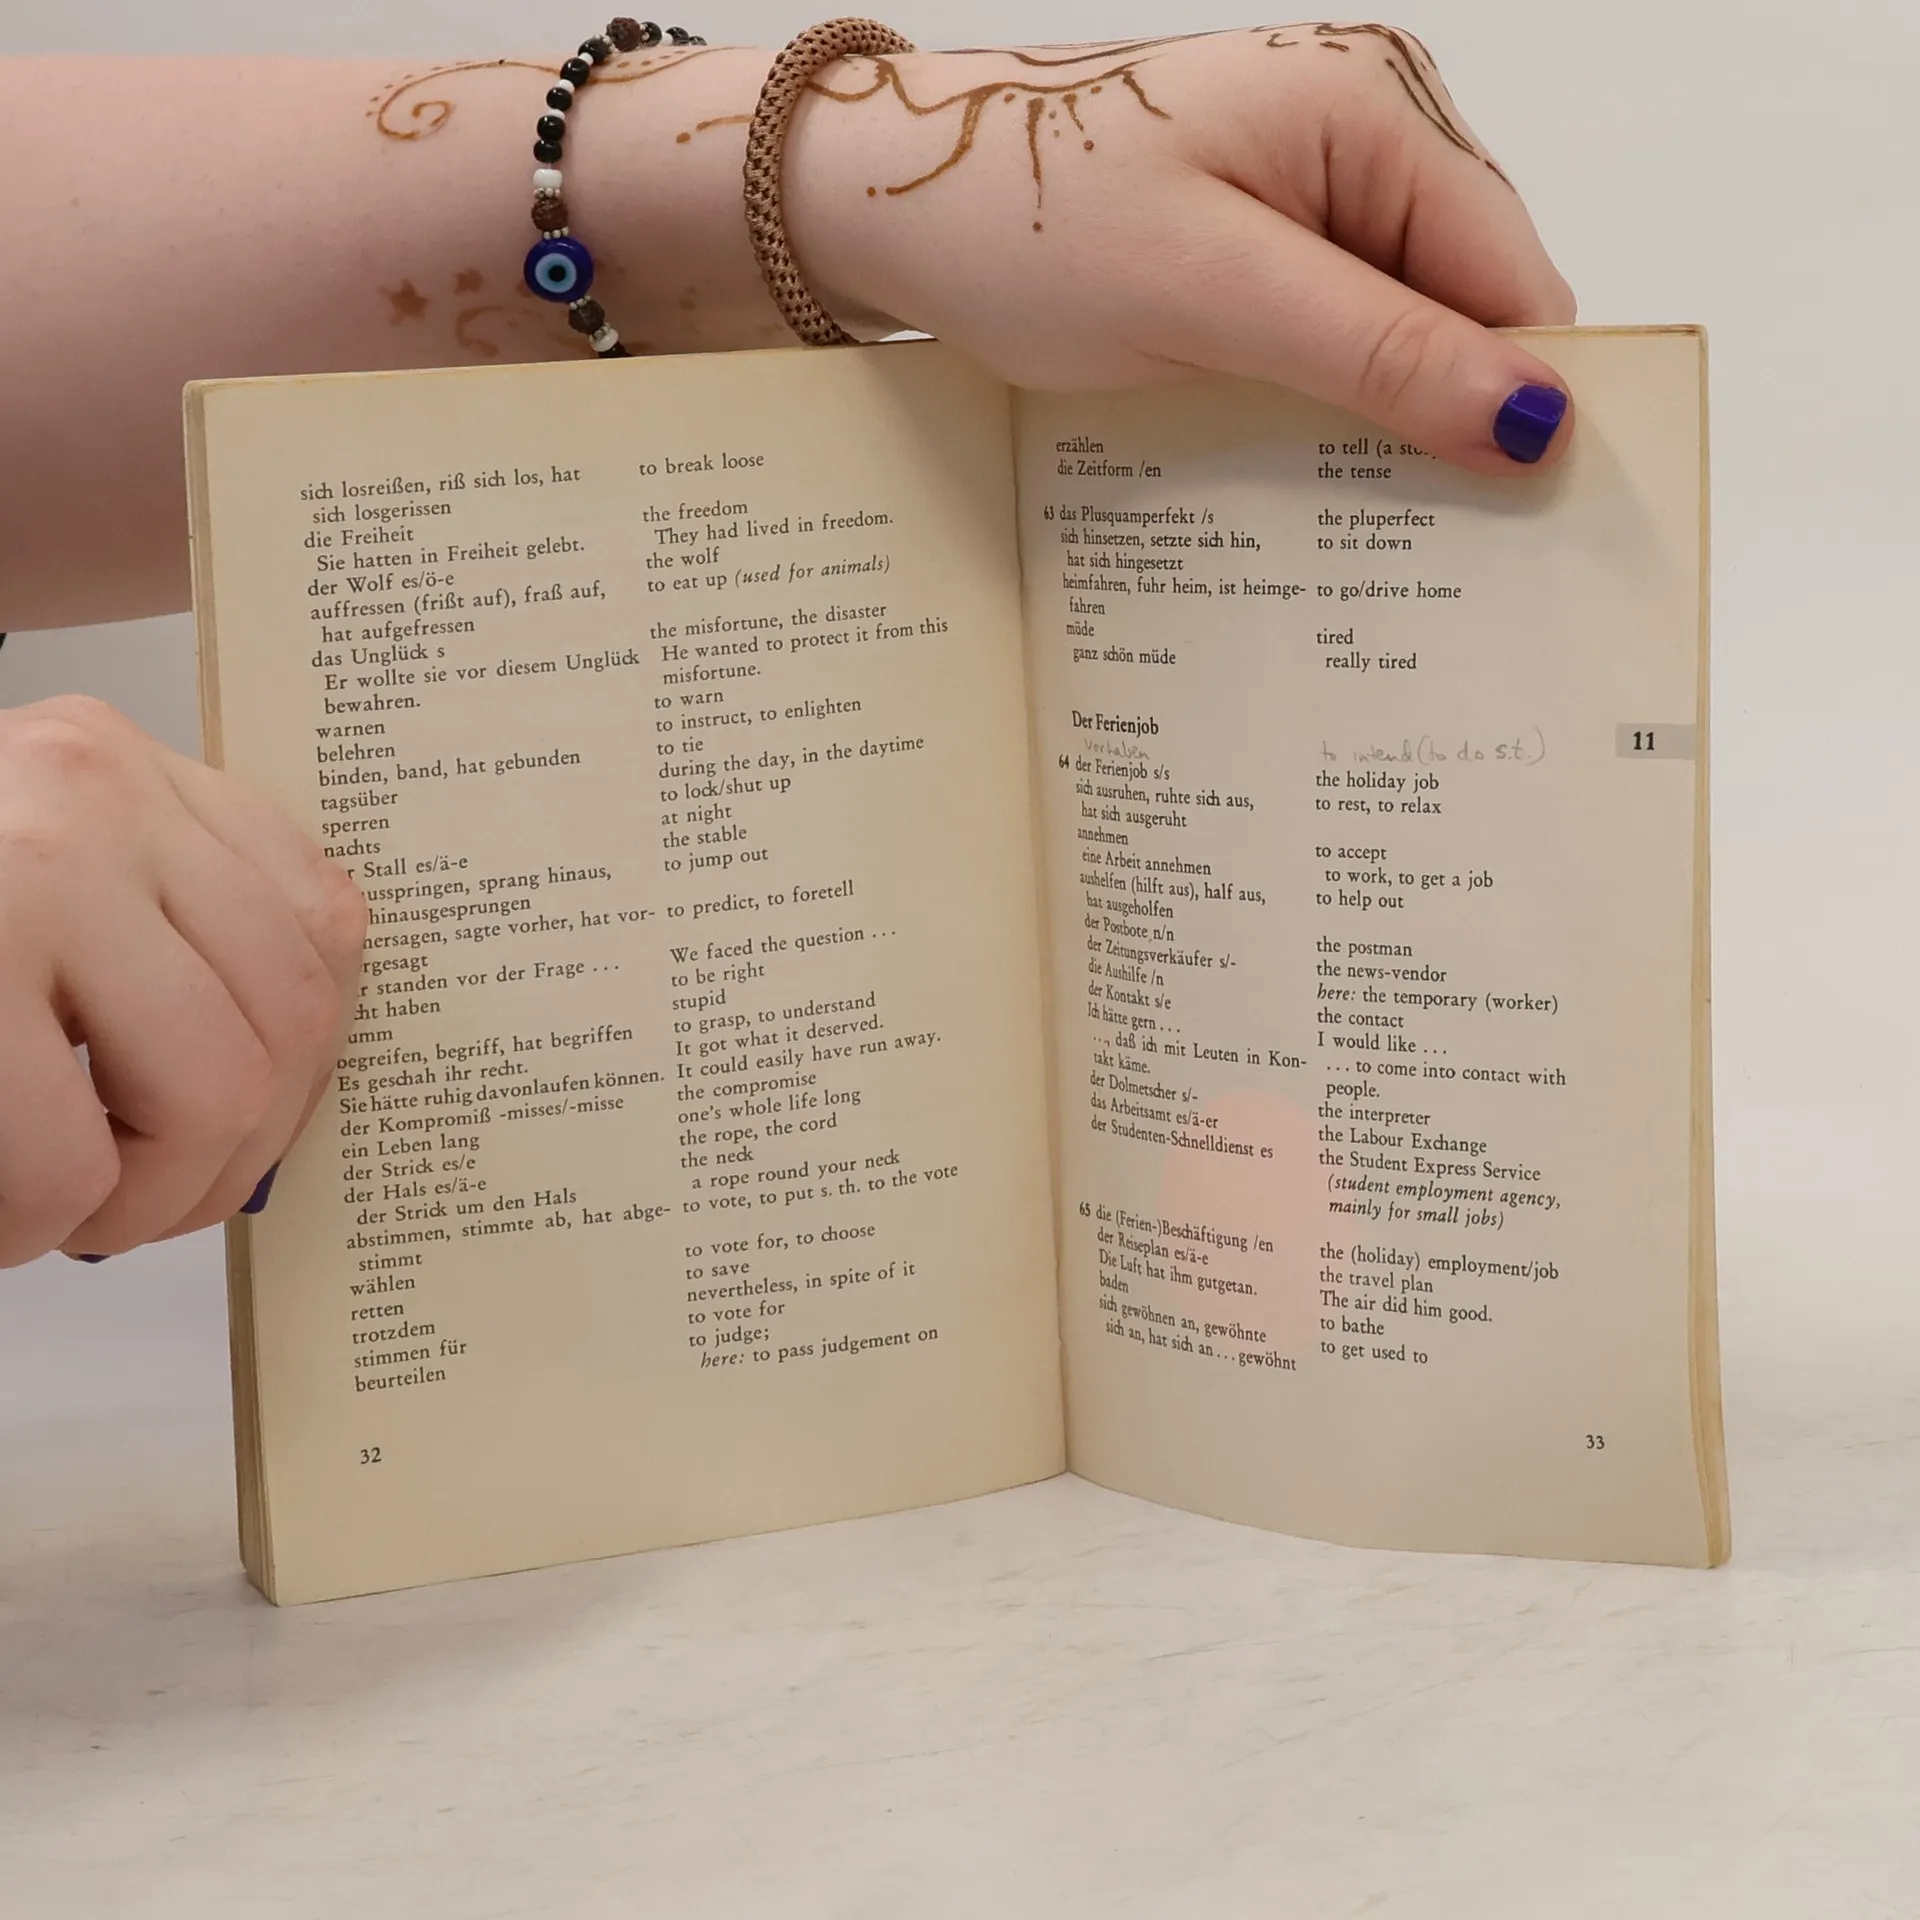 sich losreißen, riß sich los, hat to break loose
sich losgerissen
die Freiheit the freedom
Sie hatten in Freiheit gelebt. They had lived in freedom.
der Wolf es/ö-e the wolf
auffressen (frißt auf), fraß auf, to eat up (used for animals)
hat aufgefressen
das Unglück s the misfortune, the disaster
Er wollte sie vor diesem Unglück He wanted to protect it from this
bewahren. misfortune.
warnen to warn
belehren to instruct, to enlighten
binden, band, hat gebunden to tie
tagsüber during the day, in the daytime
sperren to lock/shut up
nachts at night
r Stall es/ä-e the stable
usspringen, sprang hinaus, to jump out
hinausgesprungen
hersagen, sagte vorher, hat vor- to predict, to foretell
rgesagt
r standen vor der Frage ... We faced the question ...
cht haben to be right
umm stupid
begreifen, begriff, hat begriffen to grasp, to understand
Es geschah ihr recht. It got what it deserved.
Sie hätte ruhig davonlaufen können. It could easily have run away.
der Kompromiß -misses/-misse the compromise
ein Leben lang one's whole life long
der Strick es/e the rope, the cord
der Hals es/ä-e the neck
der Strick um den Hals a rope round your neck
abstimmen, stimmte ab, hat abge- to vote, to put s. th. to the vote
stimmt
wählen to vote for, to choose
retten to save
trotzdem nevertheless, in spite of it
stimmen für to vote for
beurteilen to judge;
here: to pass judgement on
32
erzählen to tell (a
die Zeitform /en the tense
63 das Plusquamperfekt /s the pluperfect
sich hinsetzen, setzte sich hin, to sit down
hat sich hingesetzt
heimfahren, fuhr heim, ist heimge- to go/drive home
fahren
müde tired
ganz schön müde really tired
Der Ferienjob
11
vorhaben to intend (to do s.t.)
64 der Ferienjob s/s the holiday job
sich ausruhen, ruhte sich aus, to rest, to relax
hat sich ausgeruht
annehmen to accept
eine Arbeit annehmen to work, to get a job
aushelfen (hilft aus), half aus, to help out
hat ausgeholfen
der Postbote n/n the postman
der Zeitungsverkäufer s/- the news-vendor
die Aushilfe /n here: the temporary (worker)
der Kontakt s/e the contact
Ich hätte gern ... I would like ...
..., daß ich mit Leuten in Kon- ... to come into contact with
takt käme. people.
der Dolmetscher s/- the interpreter
das Arbeitsamt es/ä-er the Labour Exchange
der Studenten-Schnelldienst es the Student Express Service
(student employment agency,
mainly for small jobs)
65 die (Ferien-)Beschäftigung /en the (holiday) employment/job
der Reiseplan es/ä-e the travel plan
Die Luft hat ihm gutgetan. The air did him good.
baden to bathe
sich gewöhnen an, gewöhnte to get used to
sich an, hat sich an ... gewöhnt
33